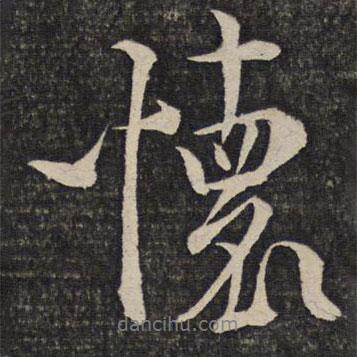 懷
dancihu.com